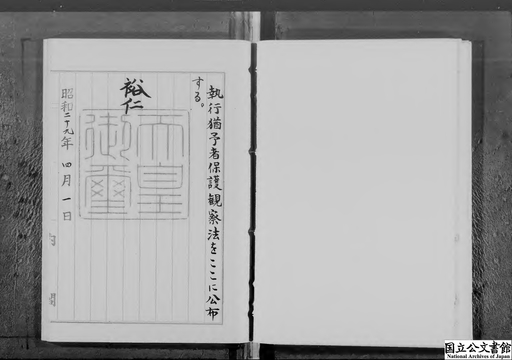 執行猶予者保護観察法をここに公布
する。
裕仁
天皇
御璽
昭和二十九年 四月 一日
国立公文書館
National Archives of Japan